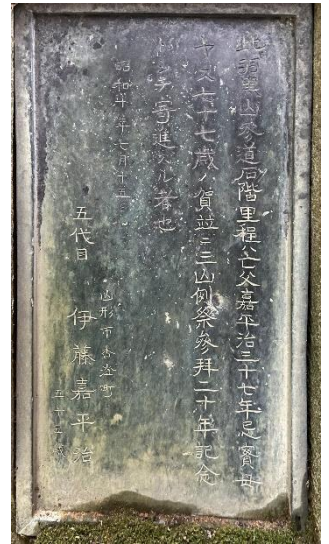 此羽黒山参道石階里程ハ亡父嘉平治三十七年忌實母
七十七歳ノ賀並ニ三山例祭参拜二十年記念
トシテ寄進スル者也
昭和年七月十五日
山形市香澄町
五代目 伊藤嘉平治
五十五歳